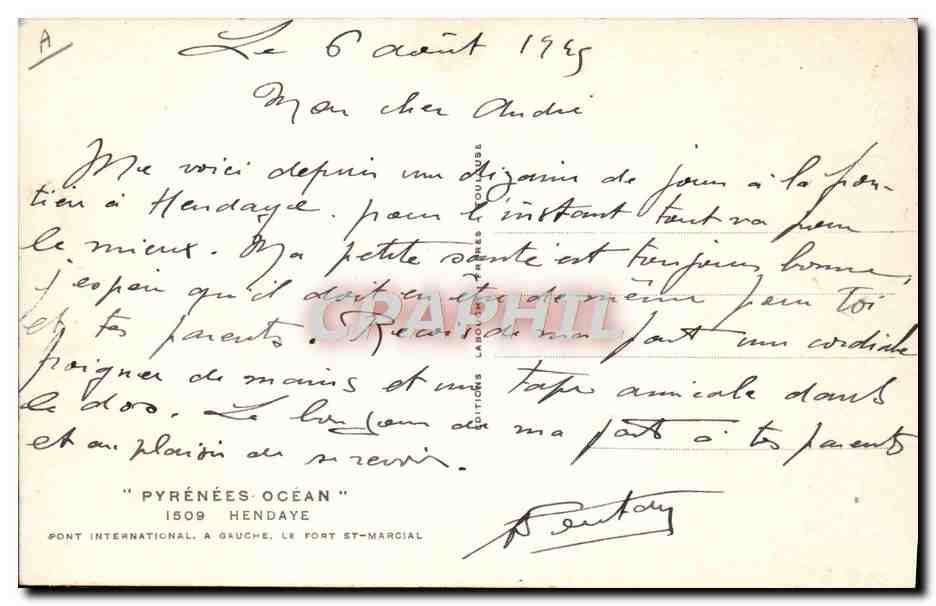 A
Le 6 août 1945
Mon cher André
Me voici depuis une dizaine de jours à la fron-
tière à Hendaye. pour l'instant tout va pour
le mieux. Ma petite santé est toujours bonne,
j'espère qu'il doit en être de même pour toi
et tes parents. Reçois de ma part une cordiale
poignée de mains et une tape amicale dans
le dos. Le bonjour de ma part à tes parents
et au plaisir de se revoir.
EDITIONS LABOUCHE FRÈRES TOULOUSE
CPAPHIL
" PYRÉNÉES-OCÉAN "
1509 HENDAYE
PONT INTERNATIONAL. A GAUCHE, LE FORT ST-MARCIAL